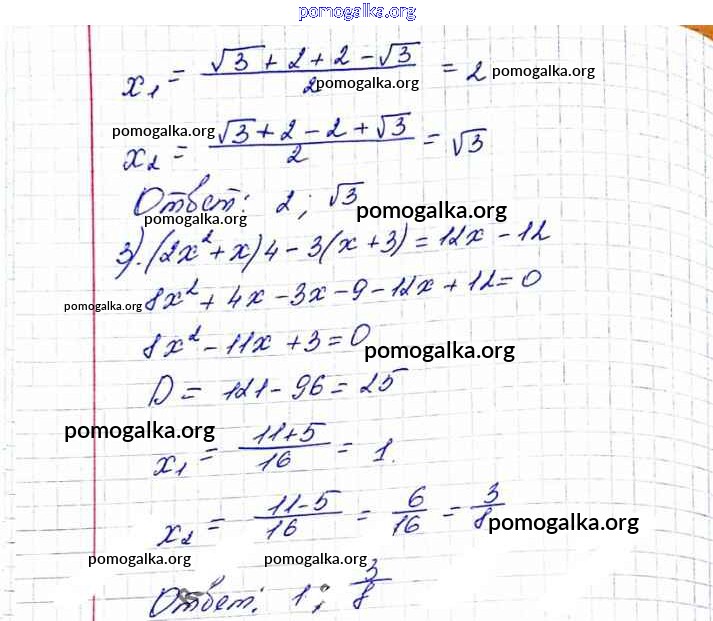 pomogalka.org
x₁ = (√3 + 2 + 2 − √3)/2 = 2 pomogalka.org pomogalka.org
pomogalka.org
x₂ = (√3 + 2 − 2 + √3)/2 = √3
Ответ: 2 ; √3
pomogalka.org pomogalka.org
3). (2x² + x)4 − 3(x + 3) = 12x − 12
pomogalka.org 8x² + 4x − 3x − 9 − 12x + 12 = 0
8x² − 11x + 3 = 0
pomogalka.org
D = 121 − 96 = 25
pomogalka.org
x₁ = (11+5)/16 = 1.
x₂ = (11−5)/16 = 6/16 = 3/8 pomogalka.org
pomogalka.org pomogalka.org
Ответ: 1 ; 3/8